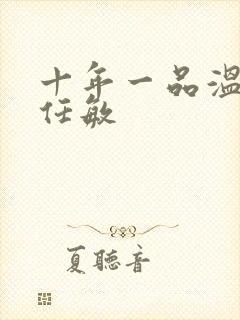 十年一品温
任敏
夏聽音